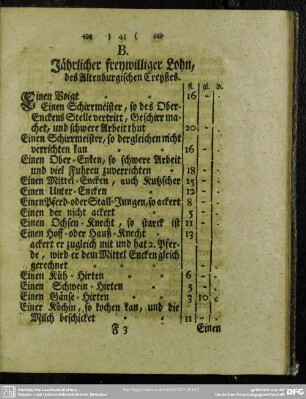 ) 45 (
B.
Jährlicher freywilliger Lohn,
des Altenburgischen Creyßes.
fl. gl. d.
Einen Voigt 16 - -
Einen Schirrmeister, so des Ober-
Enckens Stelle vertritt, Geschirr ma-
chet, und schwere Arbeit thut 20 - -
Einen Schirrmeister, so dergleichen nicht
verrichten kan 16 - -
Einen Ober-Encken, so schwere Arbeit
und viel Fuhren zuverrichten 18 - -
Einen Mittel-Encken, auch Kutzscher 15 - -
Einen Unter-Encken 12 - -
Einen Pferd-oder Stall-Jungen, so ackert 8 - -
Einen der nicht ackert 5 - -
Einen Ochsen-Knecht, so starck ist 11 - -
Einen Hoff-oder Hauß-Knecht 13
ackert er zugleich mit und hat 2. Pfer-
de, wird er dem Mittel Encken gleich
gerechnet
Einen Küh-Hirten 6 - -
Einen Schwein-Hirten 5 - -
Einen Gänse-Hirten 3 10 6
Einer Köchin, so kochen kan, und die
Milch beschicket 11 - -
F 3 Einen